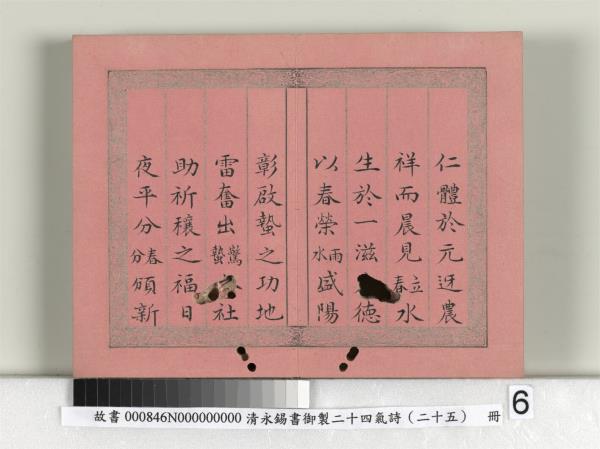 仁體於元迓農
祥而晨見立春水
生於一滋德
以春榮雨水盛陽
彰啟蟄之功地
雷奮出驚蟄社
助祈穰之福日
夜平分春分頒新
故書 000846N000000000 清永錫書御製二十四氣詩（二十五） 冊
6